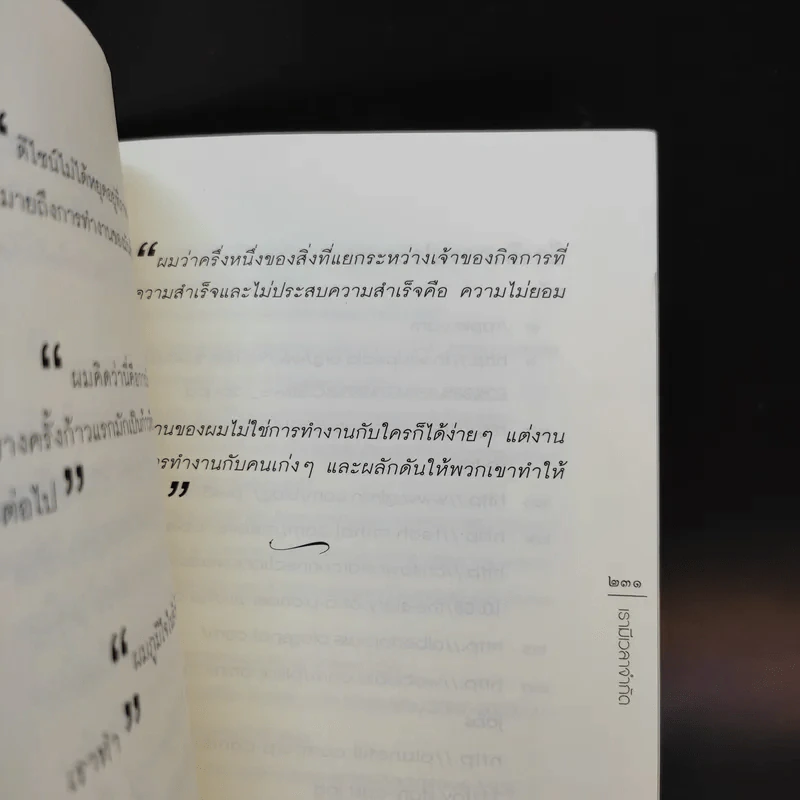 “ ดีไซน์ไม่ได้หยุดอยู่
มายถึงการทำงานของ
“ ผมคิดว่านี่คือการ
างครั้งก้าวแรกมักเป็นก้าว
ต่อไป ”
“ ผมภูมิใจ
เราทำ ”
“ ผมว่าครึ่งหนึ่งของสิ่งที่แยกระหว่างเจ้าของกิจการที่
ความสำเร็จและไม่ประสบความสำเร็จคือ ความไม่ยอม
านของผมไม่ใช่การทำงานกับใครก็ได้ง่ายๆ แต่งาน
ารทำงานกับคนเก่งๆ และผลักดันให้พวกเขาทำให้
”
๒๓๑
เรามีเวลาจำกัด